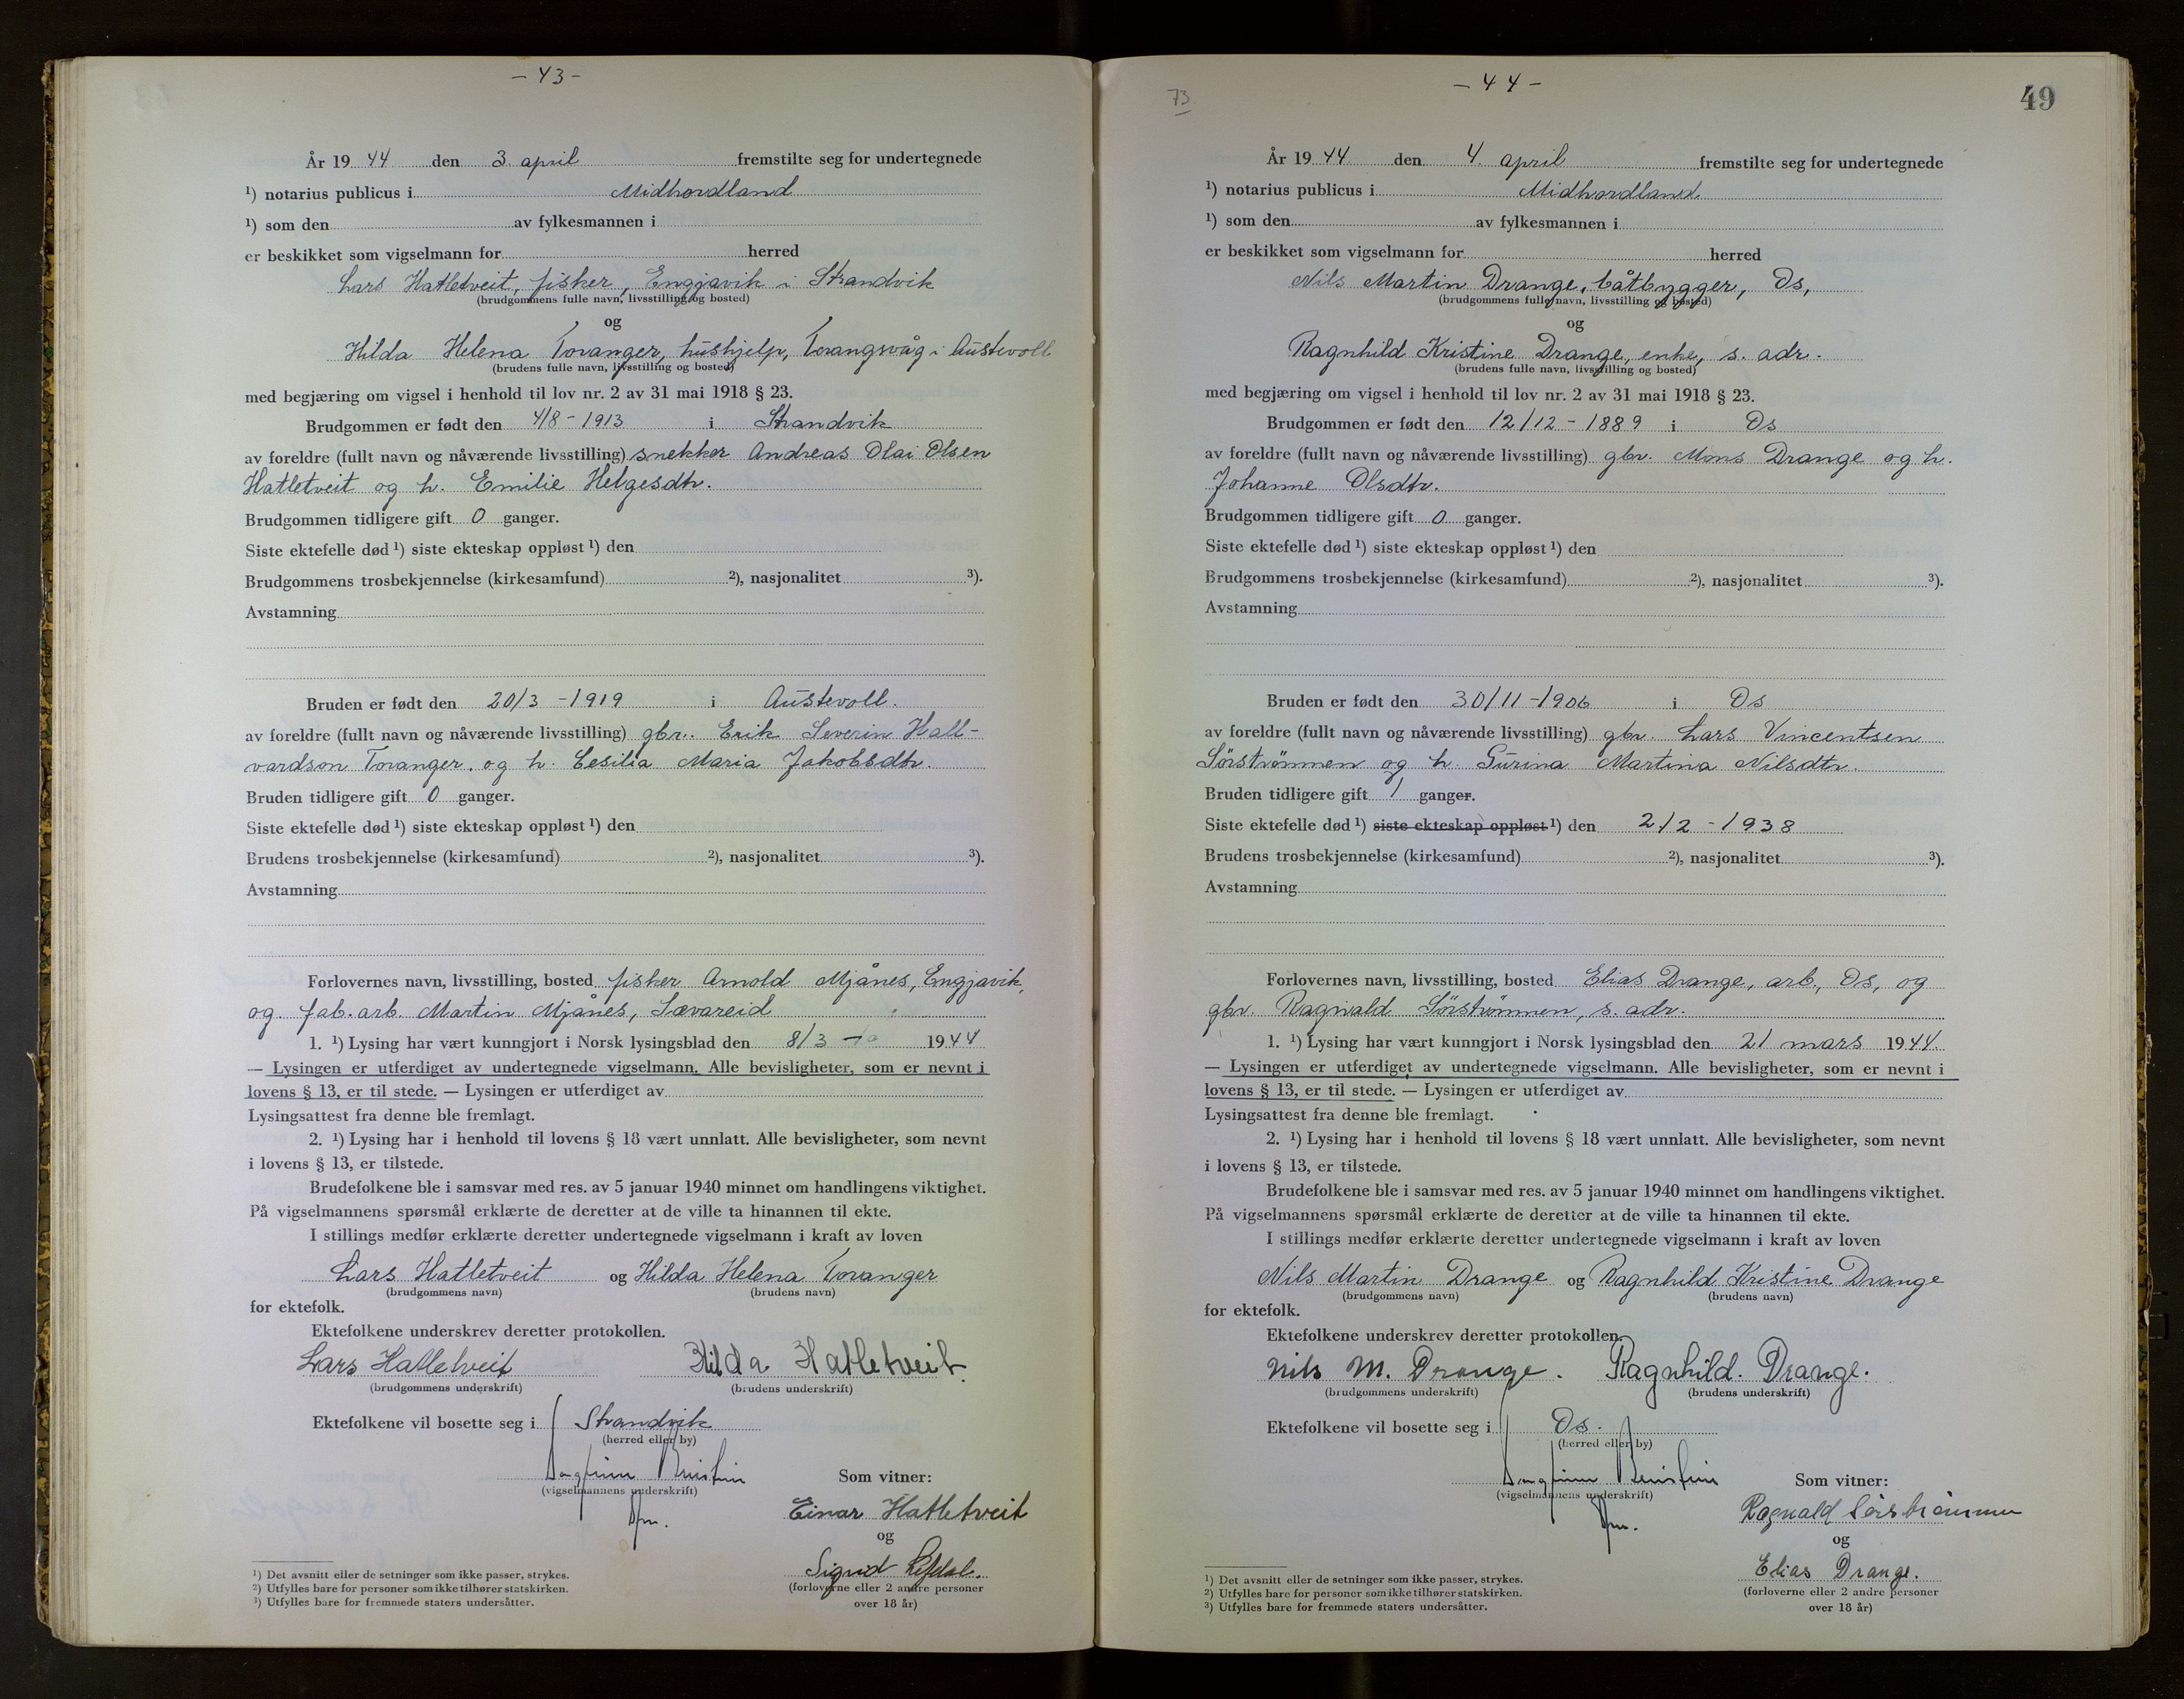 - 43 -
År 19 44 den 3. april fremstilte seg for undertegnede
¹) notarius publicus i Midhordland
¹) som den av fylkesmannen i
er beskikket som vigselmann for herred
Lars Hatletveit, fisker, Engjavik i Strandvik
(brudgommens fulle navn, livsstilling og bosted)
og
Hilda Helena Toranger, hushjelp, Torangsvåg i Austevoll
(brudens fulle navn, livsstilling og bosted)
med begjæring om vigsel i henhold til lov nr. 2 av 31 mai 1918 § 23.
Brudgommen er født den 4/8 - 1913 i Strandvik
av foreldre (fullt navn og nåværende livsstilling) snekker Andreas Olai Olsen
Hatletveit og h. Emilie Helgesdtr.
Brudgommen tidligere gift 0 ganger.
Siste ektefelle død ¹) siste ekteskap oppløst ¹) den
Brudgommens trosbekjennelse (kirkesamfund) ²), nasjonalitet ³).
Avstamning
Bruden er født den 20/3 - 1919 i Austevoll.
av foreldre (fullt navn og nåværende livsstilling) gbr. Erik Severin Hall-
vardson Toranger. og h. Cesilia Maria Jakobsdtr.
Bruden tidligere gift 0 ganger.
Siste ektefelle død ¹) siste ekteskap oppløst ¹) den
Brudens trosbekjennelse (kirkesamfund) ²), nasjonalitet ³).
Avstamning
Forlovernes navn, livsstilling, bosted fisker Arnold Mjånes, Engjavik,
og fab. arb. Martin Mjånes, Sævareid
1. ¹) Lysing har vært kunngjort i Norsk lysingsblad den 8/3 1944
— Lysingen er utferdiget av undertegnede vigselmann. Alle bevisligheter, som er nevnt i
lovens § 13, er til stede. — Lysingen er utferdiget av
Lysingsattest fra denne ble fremlagt.
2. ¹) Lysing har i henhold til lovens § 18 vært unnlatt. Alle bevisligheter, som nevnt
i lovens § 13, er tilstede.
Brudefolkene ble i samsvar med res. av 5 januar 1940 minnet om handlingens viktighet.
På vigselmannens spørsmål erklærte de deretter at de ville ta hinannen til ekte.
I stillings medfør erklærte deretter undertegnede vigselmann i kraft av loven
Lars Hatletveit og Hilda Helena Toranger
(brudgommens navn) (brudens navn)
for ektefolk.
Ektefolkene underskrev deretter protokollen.
Lars Hatletveit Hilda Hatletveit.
(brudgommens underskrift) (brudens underskrift)
Ektefolkene vil bosette seg i Strandvik
(herred eller by)
Dagfinn
(vigselmannens underskrift)
Som vitner:
Einar Hatletveit
og
Sigrid
(forloverne eller 2 andre personer
over 18 år)
¹) Det avsnitt eller de setninger som ikke passer, strykes.
²) Utfylles bare for personer som ikke tilhører statskirken.
³) Utfylles bare for fremmede staters undersåtter.
73
- 44 -
49
År 19 44 den 4. april fremstilte seg for undertegnede
¹) notarius publicus i Midhordland
¹) som den av fylkesmannen i
er beskikket som vigselmann for herred
Nils Martin Drange, båtbygger, Os,
(brudgommens fulle navn, livsstilling og bosted)
og
Ragnhild Kristine Drange, enke, s. adr.
(brudens fulle navn, livsstilling og bosted)
med begjæring om vigsel i henhold til lov nr. 2 av 31 mai 1918 § 23.
Brudgommen er født den 12/12 - 1889 i Os
av foreldre (fullt navn og nåværende livsstilling) gbr. Mons Drange og h.
Johanne Olsdtr.
Brudgommen tidligere gift 0 ganger.
Siste ektefelle død ¹) siste ekteskap oppløst ¹) den
Brudgommens trosbekjennelse (kirkesamfund) ²), nasjonalitet ³).
Avstamning
Bruden er født den 30/11 - 1906 i Os
av foreldre (fullt navn og nåværende livsstilling) gbr. Lars Vincentsen
Sörströnmen og h. Gurina Martina Nilsdtr.
Bruden tidligere gift 1 ganger.
Siste ektefelle død ¹) siste ekteskap oppløst ¹) den 2/2 - 1938
Brudens trosbekjennelse (kirkesamfund) ²), nasjonalitet ³).
Avstamning
Forlovernes navn, livsstilling, bosted Elias Drange, arb., Os, og
gbr. Ragnvald Sörströnmen, s. adr.
1. ¹) Lysing har vært kunngjort i Norsk lysingsblad den 21 mars 1944.
— Lysingen er utferdiget av undertegnede vigselmann. Alle bevisligheter, som er nevnt i
lovens § 13, er til stede. — Lysingen er utferdiget av
Lysingsattest fra denne ble fremlagt.
2. ¹) Lysing har i henhold til lovens § 18 vært unnlatt. Alle bevisligheter, som nevnt
i lovens § 13, er tilstede.
Brudefolkene ble i samsvar med res. av 5 januar 1940 minnet om handlingens viktighet.
På vigselmannens spørsmål erklærte de deretter at de ville ta hinannen til ekte.
I stillings medfør erklærte deretter undertegnede vigselmann i kraft av loven
Nils Martin Drange og Ragnhild Kristine Drange
(brudgommens navn) (brudens navn)
for ektefolk.
Ektefolkene underskrev deretter protokollen.
Nils M. Drange. Ragnhild. Drange.
(brudgommens underskrift) (brudens underskrift)
Ektefolkene vil bosette seg i Os.
(herred eller by)
Dagfinn
(vigselmannens underskrift)
Som vitner:
Ragnvald
og
Elias Drange.
(forloverne eller 2 andre personer
over 18 år)
¹) Det avsnitt eller de setninger som ikke passer, strykes.
²) Utfylles bare for personer som ikke tilhører statskirken.
³) Utfylles bare for fremmede staters undersåtter.